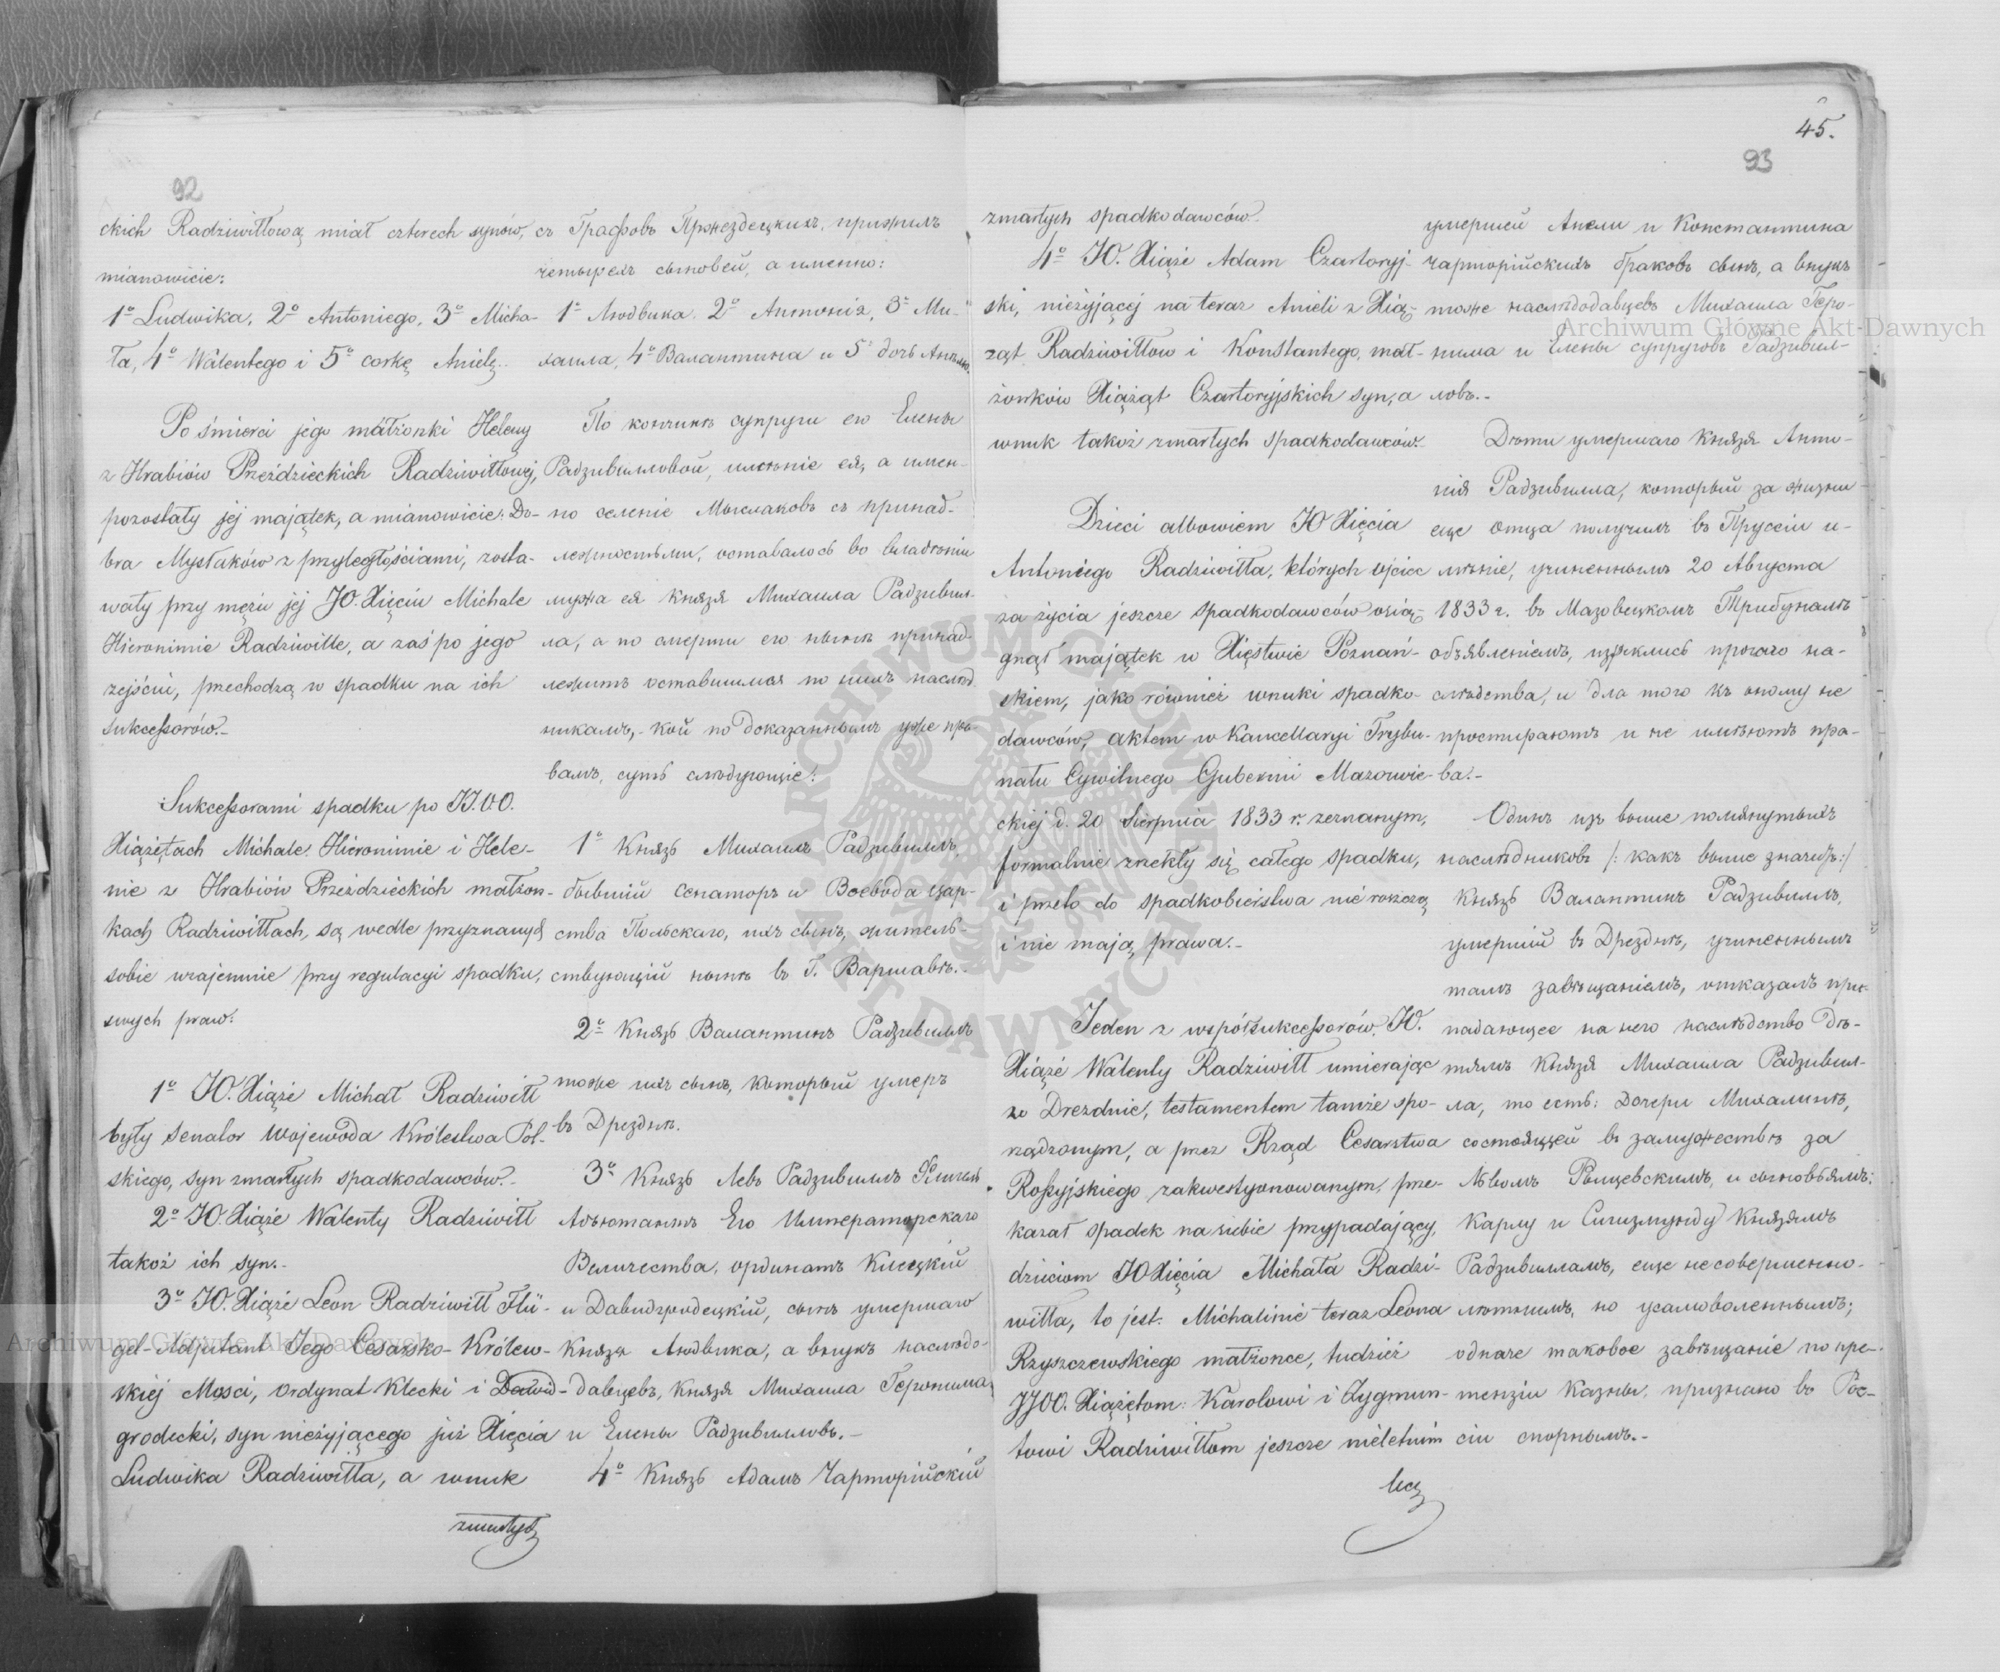 92
ckich Radziwiłłową miał czterech synów,
mianowicie:
1o Ludwika, 2o Antoniego, 3o Micha-
ła, 4o Walentego i 5o corkę Anielę.
Po śmierci jego małżonki Heleny
z Hrabiów Przeździeckich Radziwiłłowej,
pozostały jej majątek, a mianowicie: Do-
bra Mysłaków z przyległościami, zosta-
wały przy mężu jej JO. Xięciu Michale
Hieronimie Radziwille, a zaś po jego
zejściu, przechodzą w spadku na ich
sukcessorów.-
Sukcessorami spadku po JJ.OO.
Xiążętach Michale Hieronimie i Hele-
nie z Hrabiów Przeździeckich małżon-
kach Radziwiłłach, są wedle przyznanych
sobie wzajemnie przy regulacyi spadku,
swych praw:
1o JO. Xiąże Michał Radziwiłł
były Senator Wojewoda Królestwa Pol-
skiego, syn zmarłych spadkodawców.-
2o JO. Xiąże Walenty Radziwiłł
takoż ich syn.-
3o JO. Xiąże Leon Radziwiłł Flü-
gel-Adjutant Jego Cesarsko-Królew-
skiej Mosci, Ordynat Klecki i Dawid-
grodecki, syn nieżyjącego już Xięcia
Ludwika Radziwiłła, a wnuk
zmarłych
съ Графовъ Пржездецкихъ, прижилъ
четырехъ сыновей, а именно:
1о Людвика, 2о Антонія, 3о Ми-
хаила, 4о Валантина и 5о дочь Анелю.
По кончинѣ супруги его Елены
Радзивилловой, имѣніе ея, а имен-
но селеніе Мыслаковъ съ принад-
лежностьми, оставалось во владѣніи
мужа ея Князя Михаила Радзивил-
ла, а по смерти его нынѣ принад-
лежитъ оставшимся по нихъ наслѣд-
никамъ,- кои по доказаннымъ уже пра-
вамъ, суть слѣдующіе:
1о Князь Михаилъ Радзивиллъ,
бывшій Сенаторъ и Воевода Цар-
ства Польскаго, ихъ сынъ, житель-
ствующій нынѣ въ Г. Варшавѣ.-
2о Князь Валантинъ Радзивиллъ
тоже ихъ сынъ, который умеръ
въ Дрезднѣ.
3о Князь Левъ Радзивиллъ Флигель
Адъютантъ Его Императорскаго
Величества, ординатъ Клецкій
и Давидгродецкій, сынъ умершаго
Князя Людвика, а внукъ наслѣдо-
давцевъ, Князя Михаила Геронима
и Елены Радзивилловъ.-
4о Князь Адамъ Чарторійскій
45.
93
zmarłych spadkodawców.
4o JO. Xiąże Adam Czartoryj-
ski, nieżyjącej na teraz Anieli z Xią-
żąt Radziwiłłow i Konstantego, mał-
żonków Xiążąt Czartoryjskich syn, a
wnuk takoż zmarłych spadkodawców.-
Dzieci albowiem JO Xięcia
Antoniego Radziwiłła, których ojciec
za życia jeszcze spadkodawców osią-
gnął majątek w Xięstwie Poznań-
skiem, jako również wnuki spadko-
dawców, aktem w Kancellaryi Trybu-
nału Cywilnego Gubernii Mazowie-
ckiej d. 20 Sierpnia 1833 r. zeznanym,
formalnie zrzekły się całego spadku,
i przeto do spadkobierstwa nie roszczą
i nie mają prawa.-
Jeden z współsukcessorów. JO.
Xiąże Walenty Radziwiłł umierając
w Dreznie, testamentem tamże spo-
rządzonym, a przez Rząd Cesarstwa
Rossyjskiego zakwestyonowanym, prze-
kazał spadek na siebie przypadający,
dzieciom JO Xięcia Michała Radzi-
wiłła, to jest: Michalinie teraz Leona
Rzyszczewskiego małżonce, tudzież
JJOO. Xiążętom: Karolowi i Zygmun-
towi Radziwiłłom jeszcze nieletnim
lecz
умершей Анели и Константина
Чарторійскихъ браковъ сынъ, а внукъ
тоже наслѣдодавцевъ Михаила Геро-
нима и Елены супруговъ Радзивил-
ловъ.-
Дѣти умершаго Князя Анто-
нія Радзивилла, который за жизни
еще отца получилъ въ Пруссіи и-
мѣніе, учиненнымъ 20 Августа
1833 г. въ Мазовецкомъ Трибуналѣ
объявленіемъ, изреклись прочаго на-
слѣдства, и для того къ оному не
простираютъ и не имѣютъ пра-
ва.-
Одинъ изъ выше помянутыхъ
наслѣдниковъ /: какъ выше значитъ:/
Князь Валантинъ Радзивиллъ,
умершій въ Дрезднѣ, учиненнымъ
тамъ завѣщаніемъ, отказалъ при-
падающее на него наслѣдство дѣ-
тямъ Князя Михаила Радзивил-
ла, то есть: Дочери Михалинѣ,
состоящей въ замужествѣ за
Львомъ Рыщевскимъ, и сыновьямъ:
Карлу и Сигизмунду Князямъ
Радзивилламъ, еще несовершенно-
лѣтнимъ, но усамоволеннымъ;
одначе таковое завѣщаніе по пре-
тензіи Казны, признано въ Рос-
сіи спорнымъ.-
Archiwum Główne Akt Dawnych
Archiwum Główne Akt Dawnych
ARCHIWUM GŁÓWNE AKT DAWNYCH